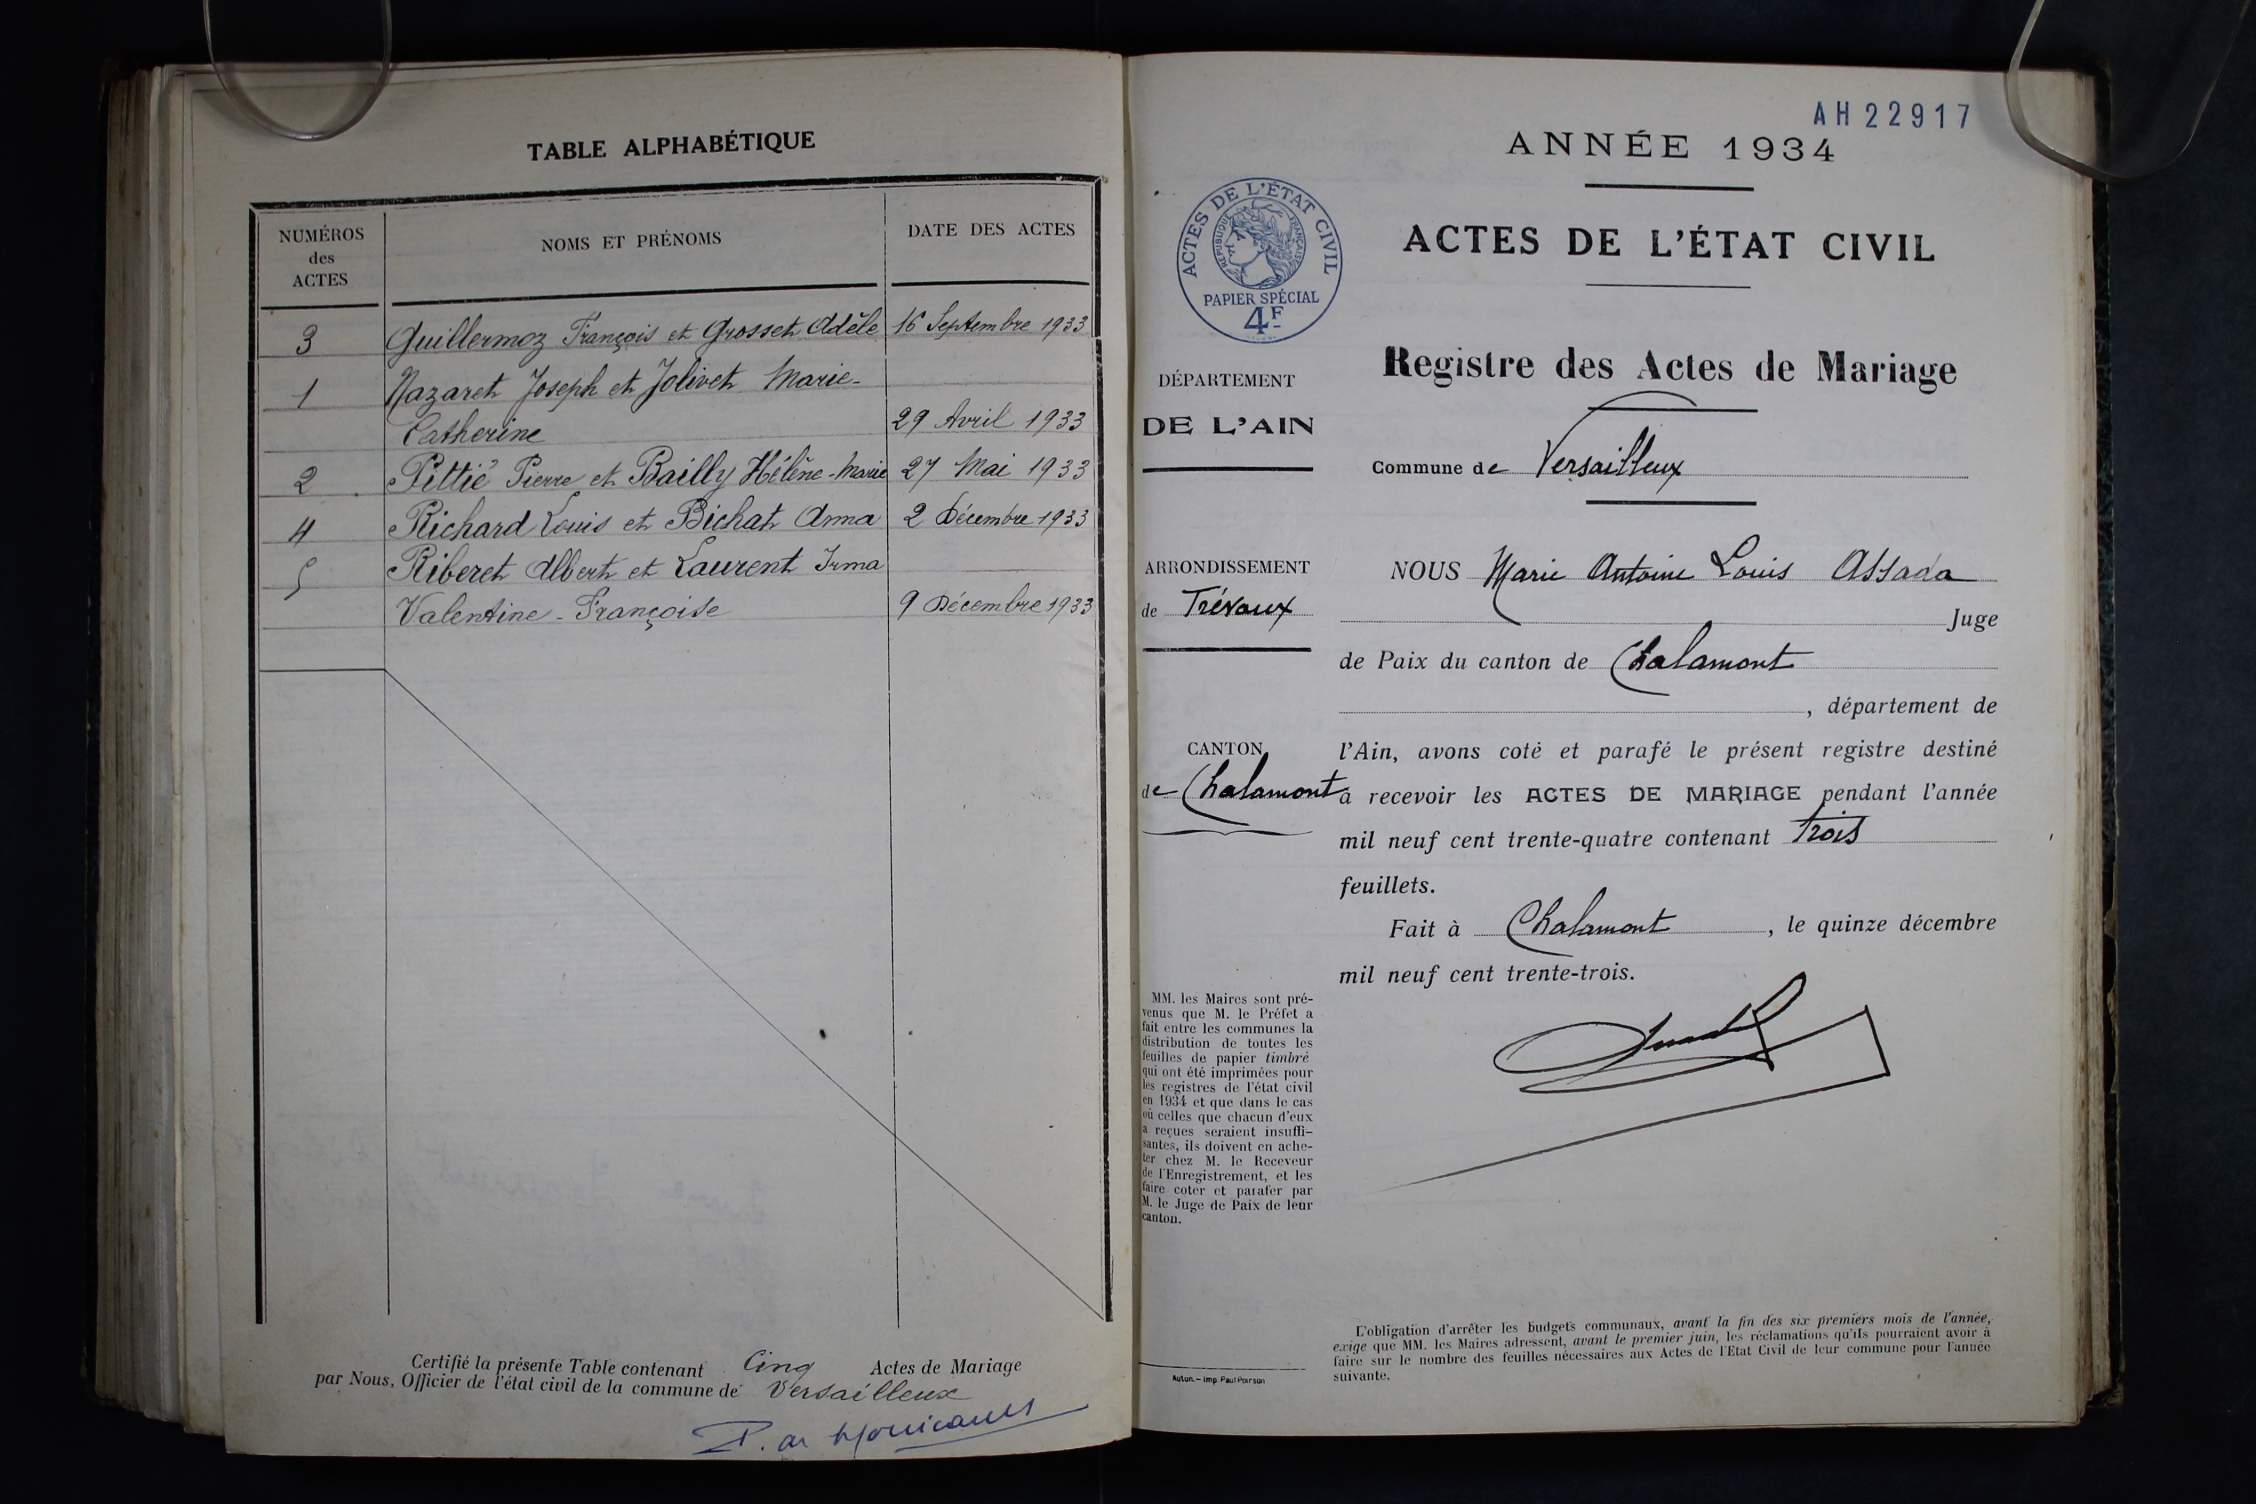 TABLE ALPHABÉTIQUE
NUMÉROS
des
ACTES
NOMS ET PRÉNOMS
DATE DES ACTES
3 Guillermoz François et Grosset Adèle 16 Septembre 1933
1 Nazaret Joseph et Jolivet Marie-
Catherine 29 Avril 1933
2 Pittié Pierre et Bailly Hélène-Marie 27 Mai 1933
4 Richard Louis et Bichat Anna 2 Décembre 1933
5 Riberet Albert et Laurent Irma
Valentine-Françoise 9 Décembre 1933
Certifié la présente Table contenant Cinq Actes de Mariage
par Nous, Officier de l'état civil de la commune de Versailleux
AH22917
ANNÉE 1934
ACTES DE L'ÉTAT CIVIL
RÉPUBLIQUE FRANÇAISE
PAPIER SPÉCIAL
4F
ACTES DE L'ÉTAT CIVIL
Registre des Actes de Mariage
DÉPARTEMENT
DE L'AIN
Commune de Versailleux
ARRONDISSEMENT
de Trévoux
CANTON
de Chalamont
NOUS Marie Antoine Louis Assada
Juge
de Paix du canton de Chalamont
, département de
l'Ain, avons coté et parafé le présent registre destiné
à recevoir les ACTES DE MARIAGE pendant l'année
mil neuf cent trente-quatre contenant trois
feuillets.
Fait à Chalamont, le quinze décembre
mil neuf cent trente-trois.
MM. les Maires sont pré-
venus que M. le Préfet a
fait entre les communes la
distribution de toutes les
feuilles de papier timbré
qui ont été imprimées pour
les registres de l'état civil
en 1934 et que dans le cas
où celles que chacun d'eux
a reçues seraient insuffi-
santes, ils doivent en ache-
ter chez M. le Receveur
de l'Enregistrement, et les
faire coter et parafer par
M. le Juge de Paix de leur
canton.
Autun. – Imp. Paul Poirson
L'obligation d'arrêter les budgets communaux, avant la fin des six premiers mois de l'année,
exige que MM. les Maires adressent, avant le premier juin, les réclamations qu'ils pourraient avoir à
faire sur le nombre des feuilles nécessaires aux Actes de l'Etat Civil de leur commune pour l'année
suivante.